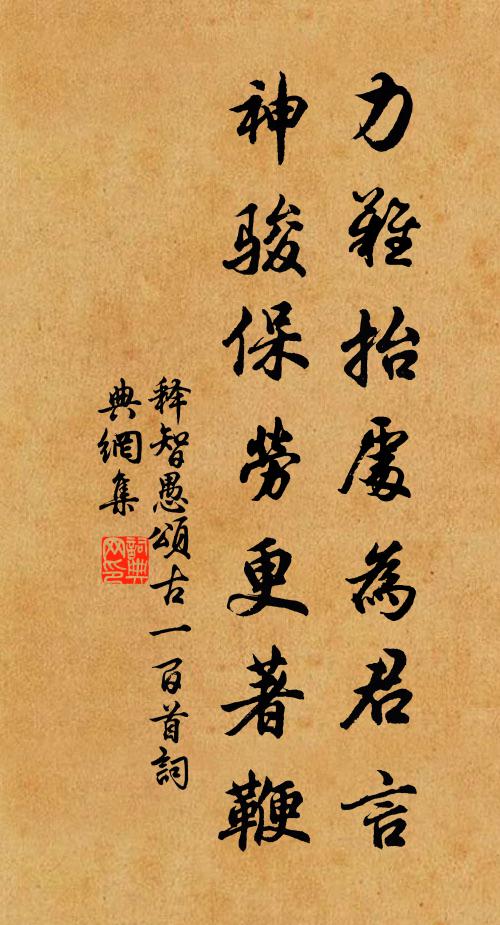 力難抬處為君言
神駿保勞更著鞭
释智愚頌古一百首詞
典網集
詞典网印